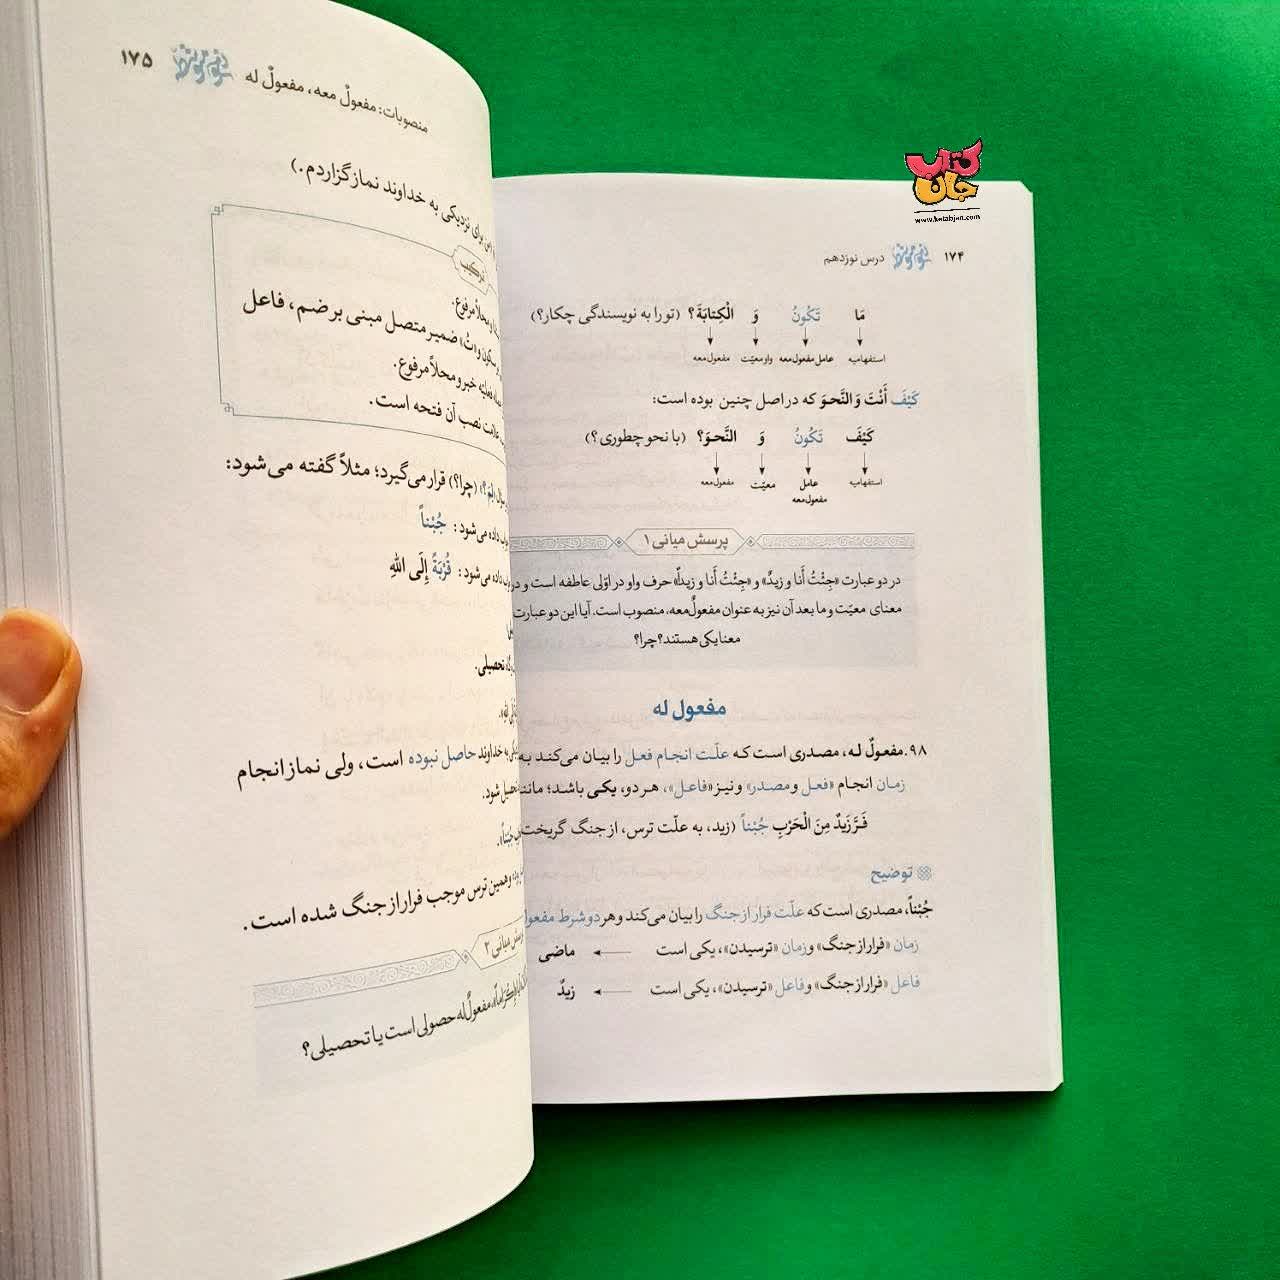 کتاب جان
www.ketabjan.com
۱۷۴ درس نوزدهم
مَا تَكُونُ وَ الْكِتابَةَ؟ (تو را به نویسندگی چکار؟)
استفهامیه عامل مفعول‌معه واو معیّت مفعول‌معه
كَيْفَ أَنْتَ وَ النَّحوَ که در اصل چنین بوده است:
كَيْفَ تَكُونُ وَ النَّحوَ؟ (با نحو چطوری؟)
استفهامیه عامل مفعول‌معه معیّت مفعول‌معه
پرسش میانی ۱
در دو عبارت «جِئْتُ أَنا و زیدٌ» و «جِئْتُ أَنا و زیداً» حرف واو در اوّلی عاطفه است و در
معنای معیّت و ما بعد آن نیز به عنوان مفعولٌ‌معه، منصوب است. آیا این دو عبارت
معنا یکی هستند؟ چرا؟
مفعول له
۹۸. مفعولٌ لـه، مصدری است کـه علّت انجام فعـل را بیـان می‌کنـد به
زمـان انجـام «فعـل و مصـدر» و نیـز «فاعـل»، هـر دو، یکـی باشـد؛ ماننـد
فَـرَّ زَيدٌ مِنَ الْحَرْبِ جُبْناً (زید، به علّت ترس، از جنگ گریخت
توضیح
جُبْناً، مصدری است که علّت فرار از جنگ را بیان می‌کند و هر دو شرط مفعول
زمان «فرار از جنگ» و زمان «ترسیدن»، یکی است ماضی
فاعل «فرار از جنگ» و فاعل «ترسیدن»، یکی است زیدٌ
منصوبات: مفعولٌ معه، مفعولٌ له ۱۷۵
برای نزدیکی به خداوند نماز گزاردم.)
ترکیب
و محلاً مرفوع.
سکون و «تُ» ضمیر متصل مبنی بر ضم، فاعل
فعلیّه خبر و محلاً مرفوع.
علامت نصب آن فتحه است.
سؤال «لِمَ؟» (چرا؟) قرار می‌گیرد؛ مثلاً گفته می‌شود:
داده می‌شود: جُبْناً
داده می‌شود: قُرْبَةً إِلَى اللهِ
تحصیلی.
به خداوند حاصل نبوده است، ولی نماز انجام
تحصیل شود.
جُبْناً».
و همین ترس موجب فرار از جنگ شده است.
پرسش میانی ۲
إِكْرَاماً»، مفعولٌ‌له حصولی است یا تحصیلی؟